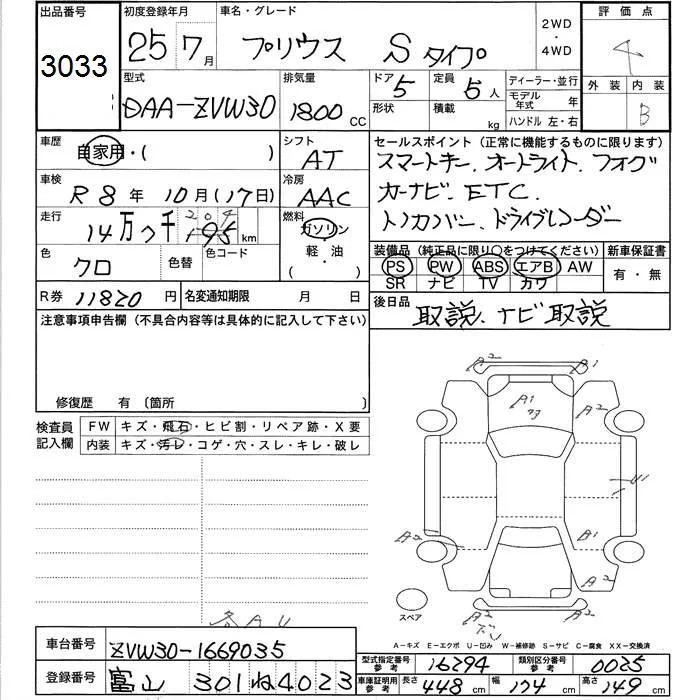 出品番号 初度登録年月 車名・グレード 2WD・4WD 評価点
3033 25年7月 プリウス Sタイプ 4
型式 排気量 ドア 5 定員 5人 ディーラー・並行 外装 内装
DAA-ZVW30 1800cc 形状 積載 kg モデル年式 年 B
ハンドル 左・右
車歴 自家用・( ) シフト AT
車検 R8年10月(17日) 冷房 AAC
走行 14万 千 km 燃料 ガソリン・軽・油・( )
色 クロ 色替 色コード
R券 11820円 名変通知期限 月 日
セールスポイント (正常に機能するものに限ります)
スマートキー、オートライト、フォグ
カーナビ、ETC、
トノカバー、ドライブレコーダー
装備品 (純正品に限り○をつけてください) 新車保証書
PS PW ABS エアB AW 有・無
SR ナビ TV カワ
後日品 取説、ナビ取説
注意事項申告欄 (不具合内容等は具体的に記入して下さい)
修復歴 有 〔箇所 〕
検査員記入欄 FW キズ・飛石・ヒビ割・リペア跡・X要
内装 キズ・汚レ・コゲ・穴・スレ・キレ・破レ
A2 A1
A1 A2
A2 B1
A2
A2
スペア
A-キズ E-エクボ U-凹み W-補修跡 S-サビ C-腐食 XX-交換済
車台番号 ZVW30-1669035
登録番号 富山 301 ね4023
型式指定番号参考 16294 類別区分番号参考 0025
車庫証明用参考 長さ 448cm 幅 174cm 高さ 149cm